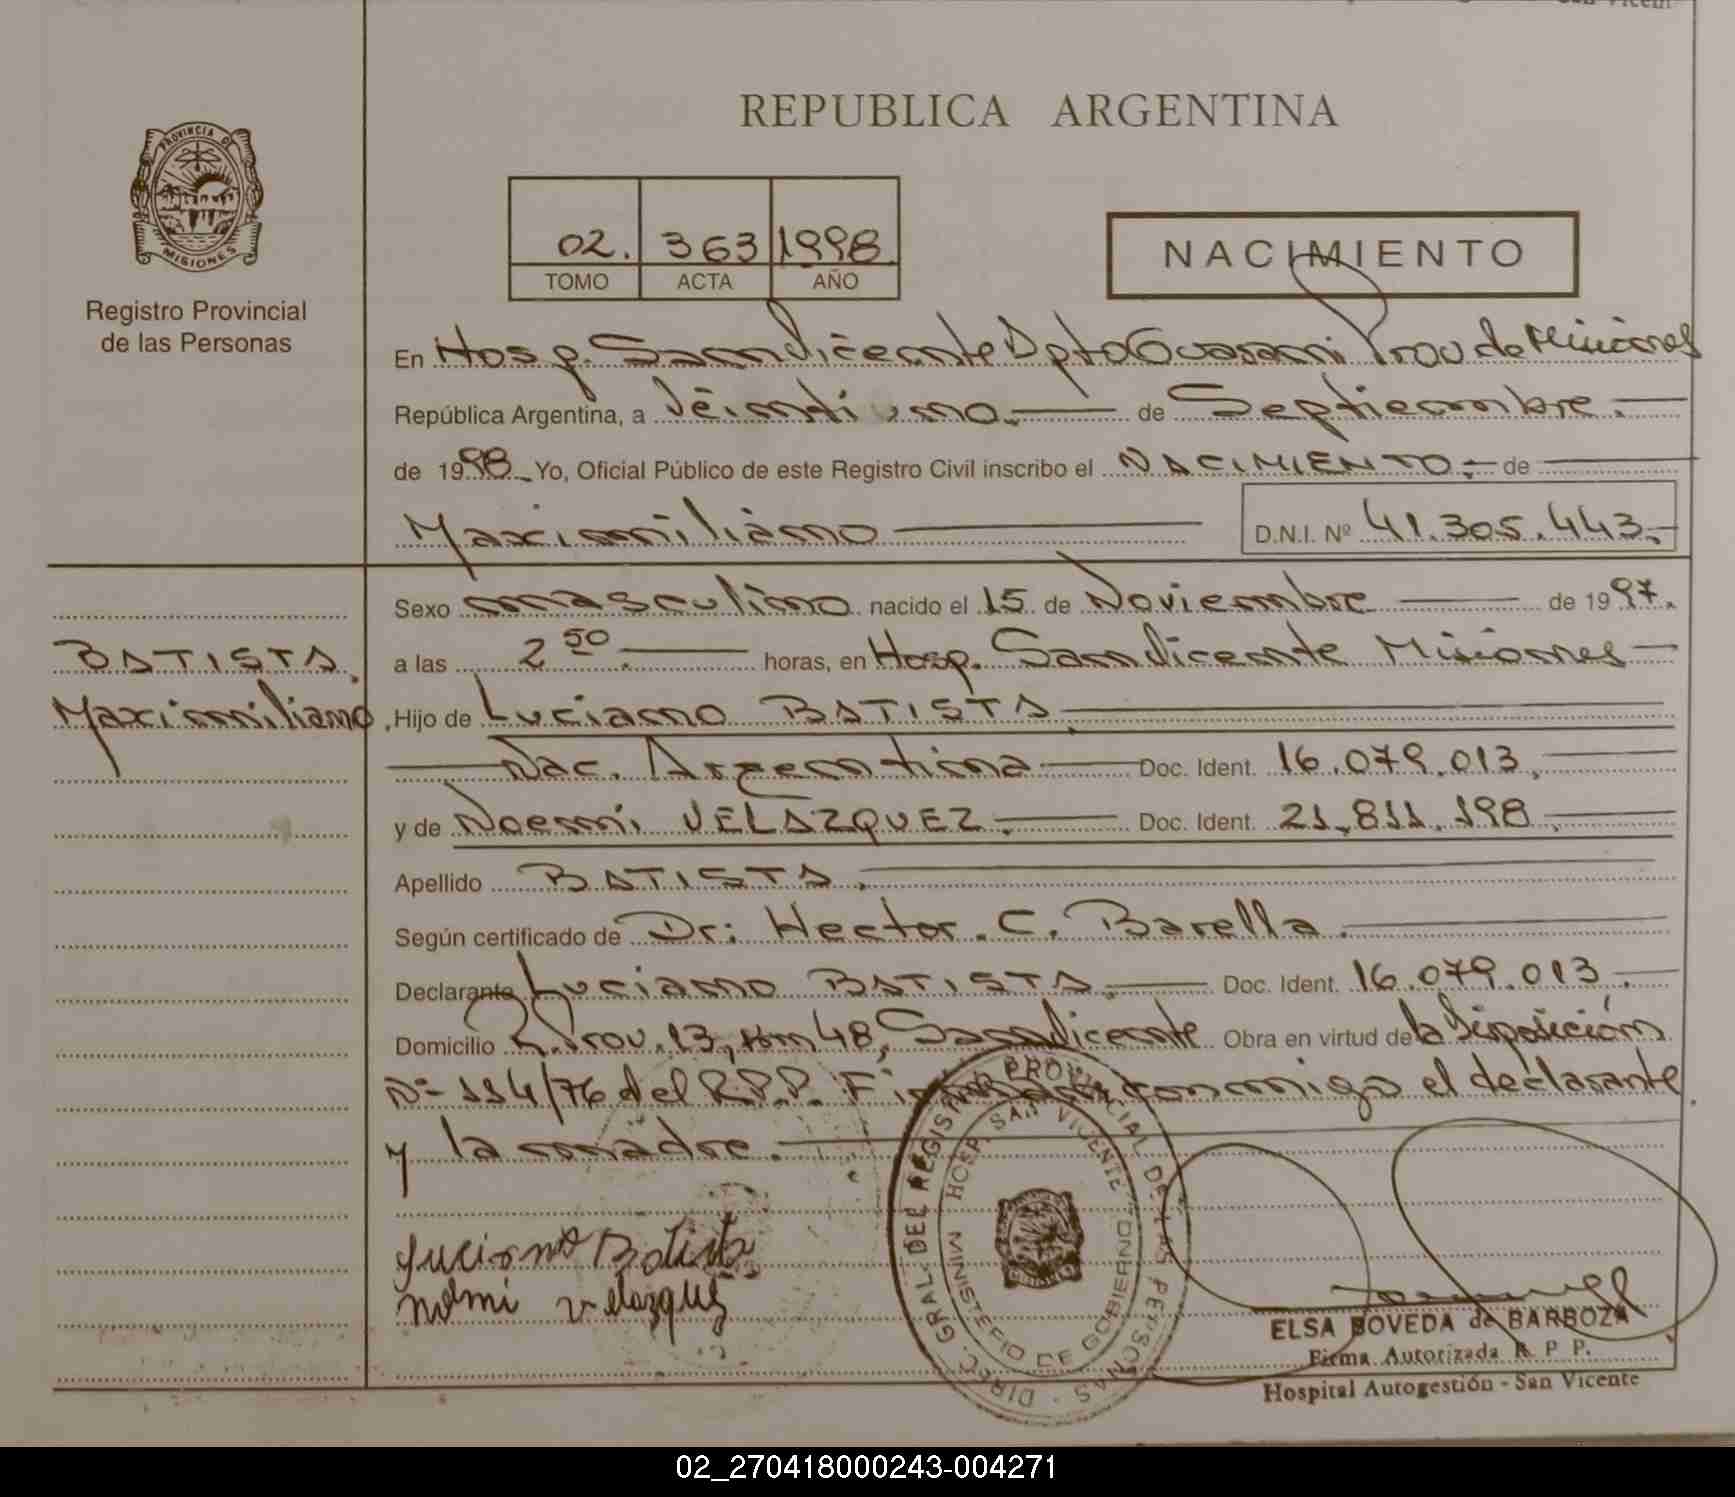 REPUBLICA ARGENTINA
PROVINCIA DE
MISIONES
Registro Provincial
de las Personas
02. 363 1998
TOMO ACTA AÑO
NACIMIENTO
En Hosp. San Vicente Dpto Guarani Prov de Misiones
República Argentina, a Veinti uno. de Septiembre.
de 1998. Yo, Oficial Público de este Registro Civil inscribo el NACIMIENTO. de
Maximiliano D.N.I. Nº 41.305.443.
Sexo masculino nacido el 15 de Noviembre de 1997.
BATISTA. a las 2 50. horas, en Hosp. San Vicente Misiones
Maximiliano, Hijo de Luciano BATISTA.
Nac. Argentina Doc. Ident. 16.079.013.
y de Noemi VELAZQUEZ. Doc. Ident. 21.811.198.
Apellido BATISTA.
Según certificado de Dr: Hector. C. Barella.
Declarante Luciano BATISTA. Doc. Ident. 16.079.013.
Domicilio R. Prov. 13, km 48, San Vicente Obra en virtud de la Disposición
Nº 114/76 del R.P.P. Firman conmigo el declarante
y la madre.
DIREC. GRAL. DEL REGISTRO PROVINCIAL DE LAS PERSONAS
HOSP. SAN VICENTE
MINISTERIO DE GOBIERNO
Luciano Batista
Noemi Velazquez
ELSA BOVEDA de BARBOZA
Firma Autorizada R. P P.
Hospital Autogestión - San Vicente
02_270418000243-004271